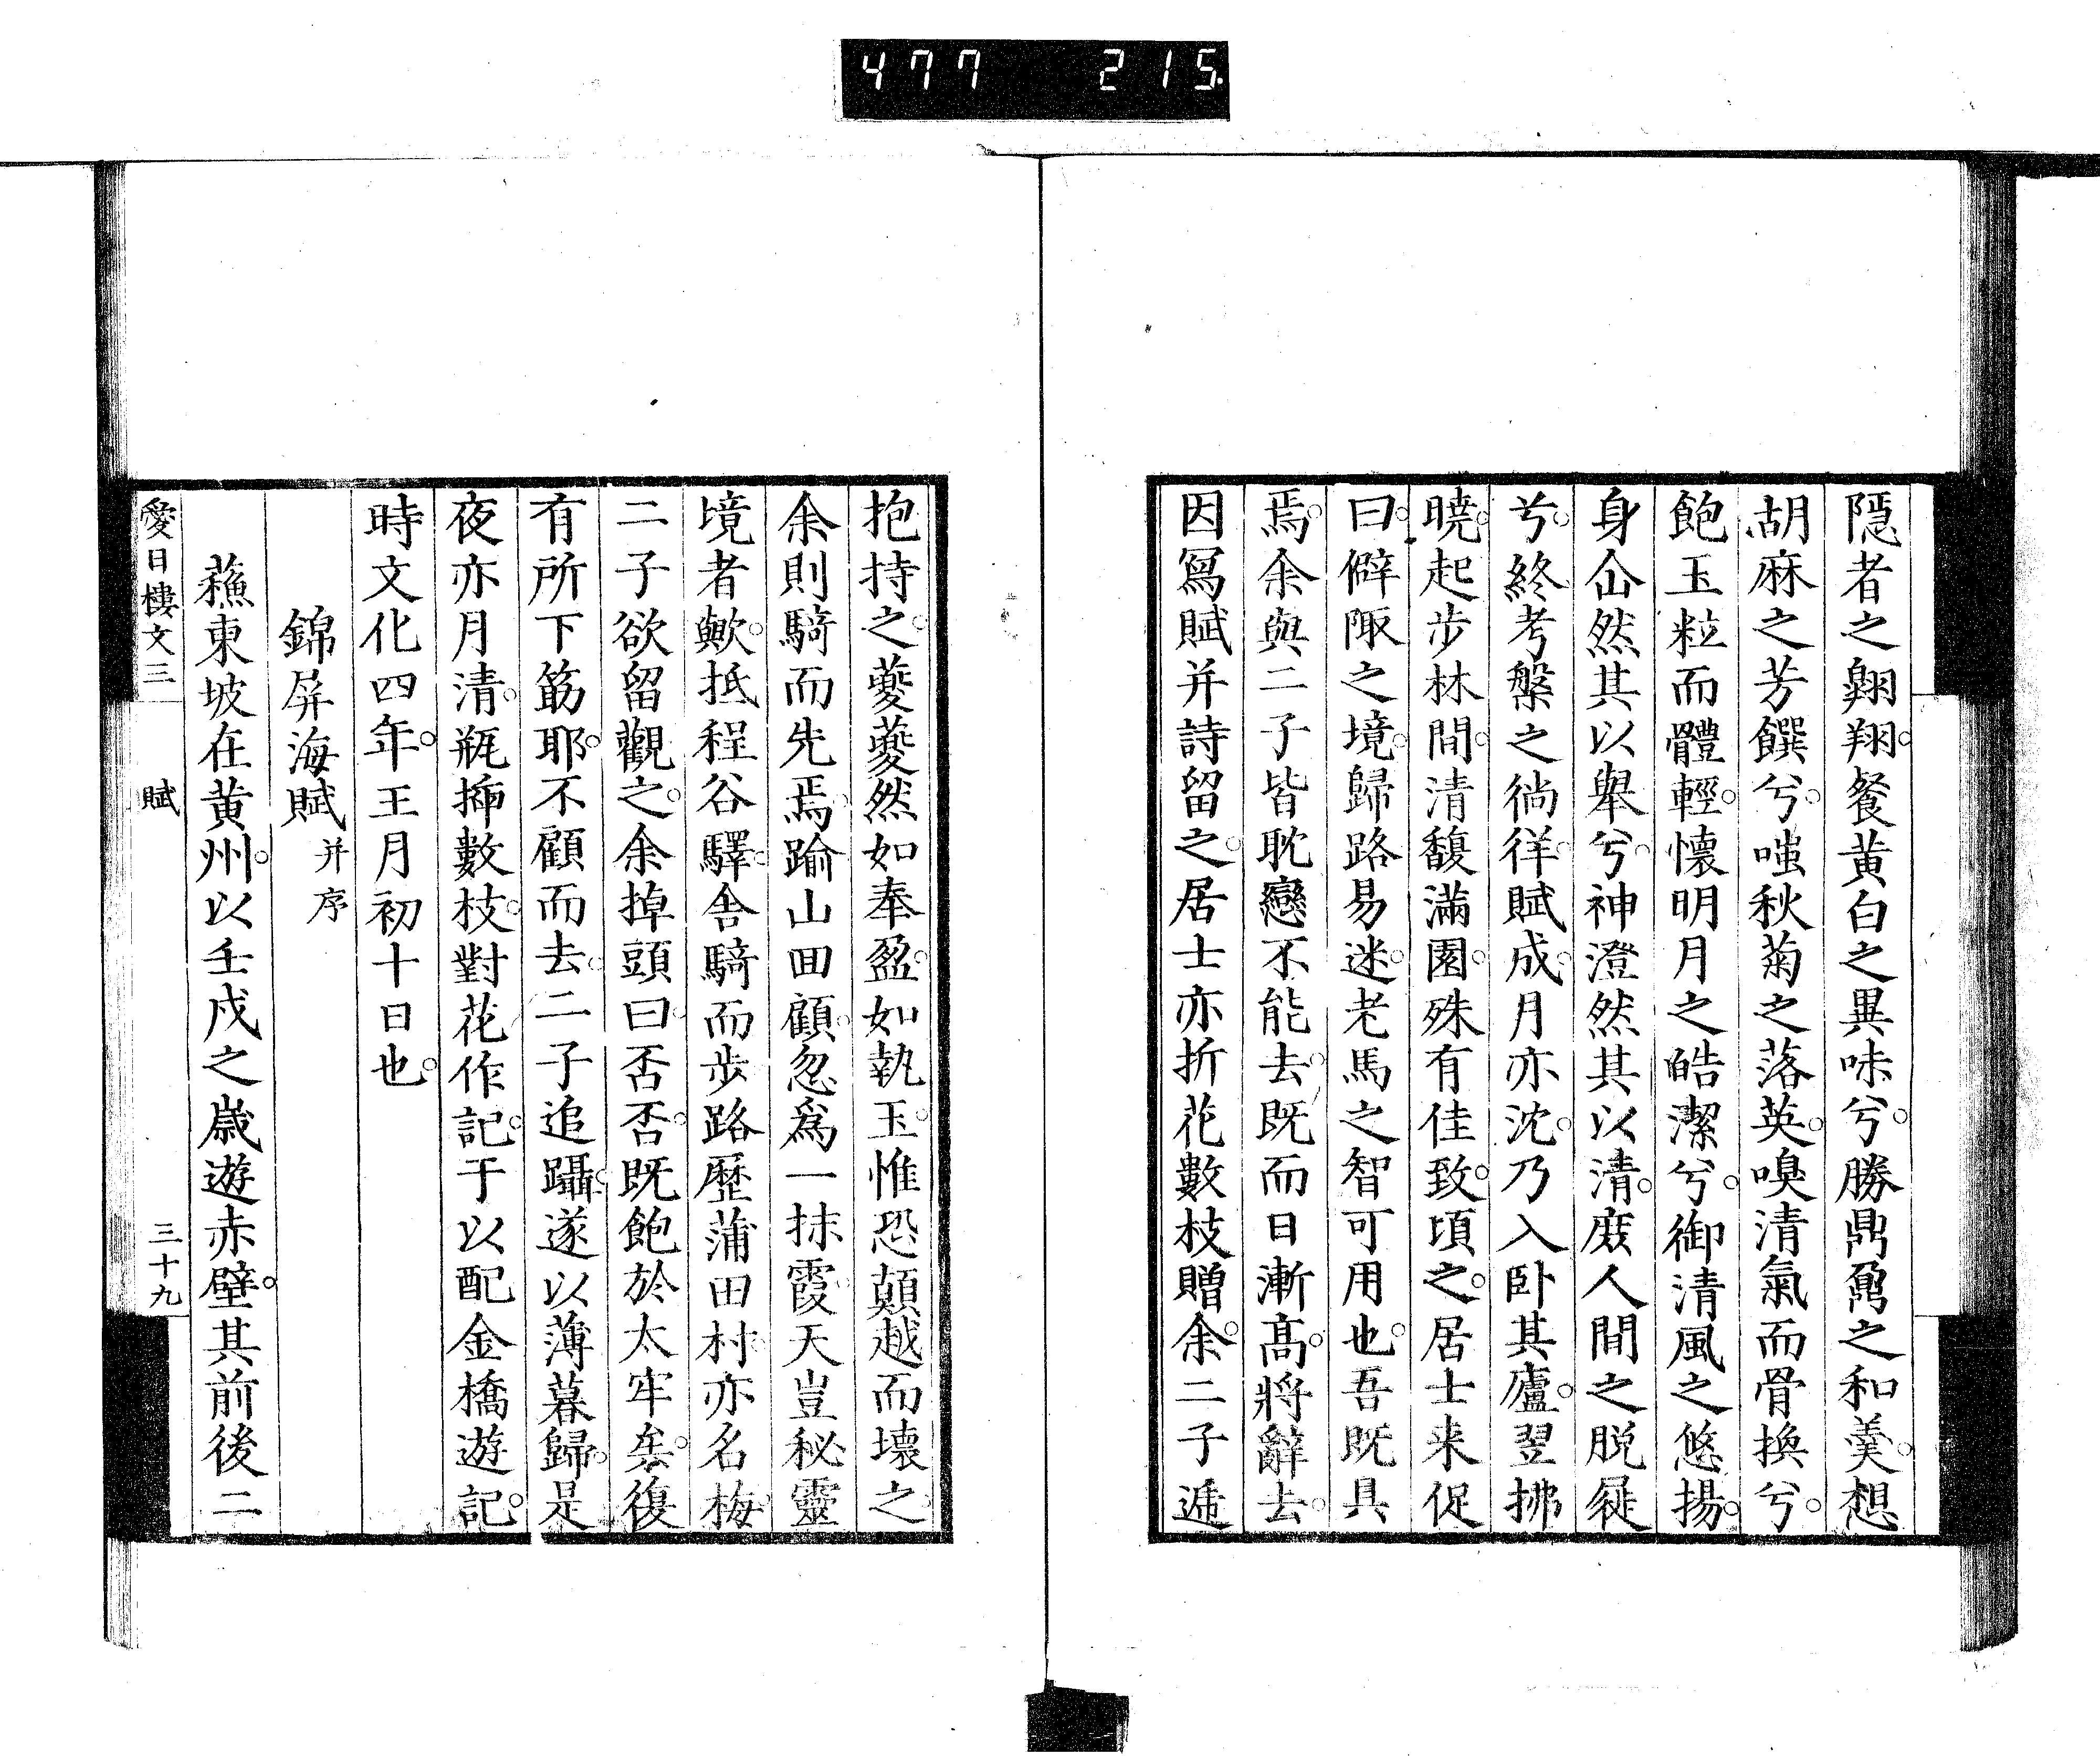 477 215
隠者之翺翔。餐黄白之異味兮。勝鼎鼐之和羹。想
胡麻之芳饌兮。嗤秋菊之落英。嗅清氣而骨換兮。
飽玉粒而體輕。懷明月之皓潔兮。御清風之悠揚。
身仚然其以舉兮。神澄然其以清。庪人間之脱屣
兮。終考槃之徜徉。賦成。月亦沈。乃入卧其廬。翌拂
曉。起步林間。清馥滿園。殊有佳致。頃之。居士来促
曰。僻陬之境。歸路易迷。老馬之智可用也。吾既具
焉。余與二子皆耽戀不能去。既而日漸髙。將辭去。
因寫賦并詩留之。居士亦折花數枝贈余。二子遞
抱持之。夔夔然如奉盈。如執玉。惟恐顛越而壊之。
余則騎而先焉。踰山回顧。忽爲一抹霞。天豈秘靈
境者歟。抵程谷驛。舎騎而步。路歴蒲田村。亦名梅。
二子欲留觀之。余掉頭曰。否否。既飽於太牢矣。復
有所下筯耶。不顧而去。二子追躡。遂以薄暮歸。是
夜亦月清。瓶揷數枝。對花作記。于以配金橋遊記。
時文化四年。王月初十日也。
錦屏海賦并序
蘓東坡在黄州。以壬戌之歳遊赤壁。其前後二
愛日樓文三 賦 三十九